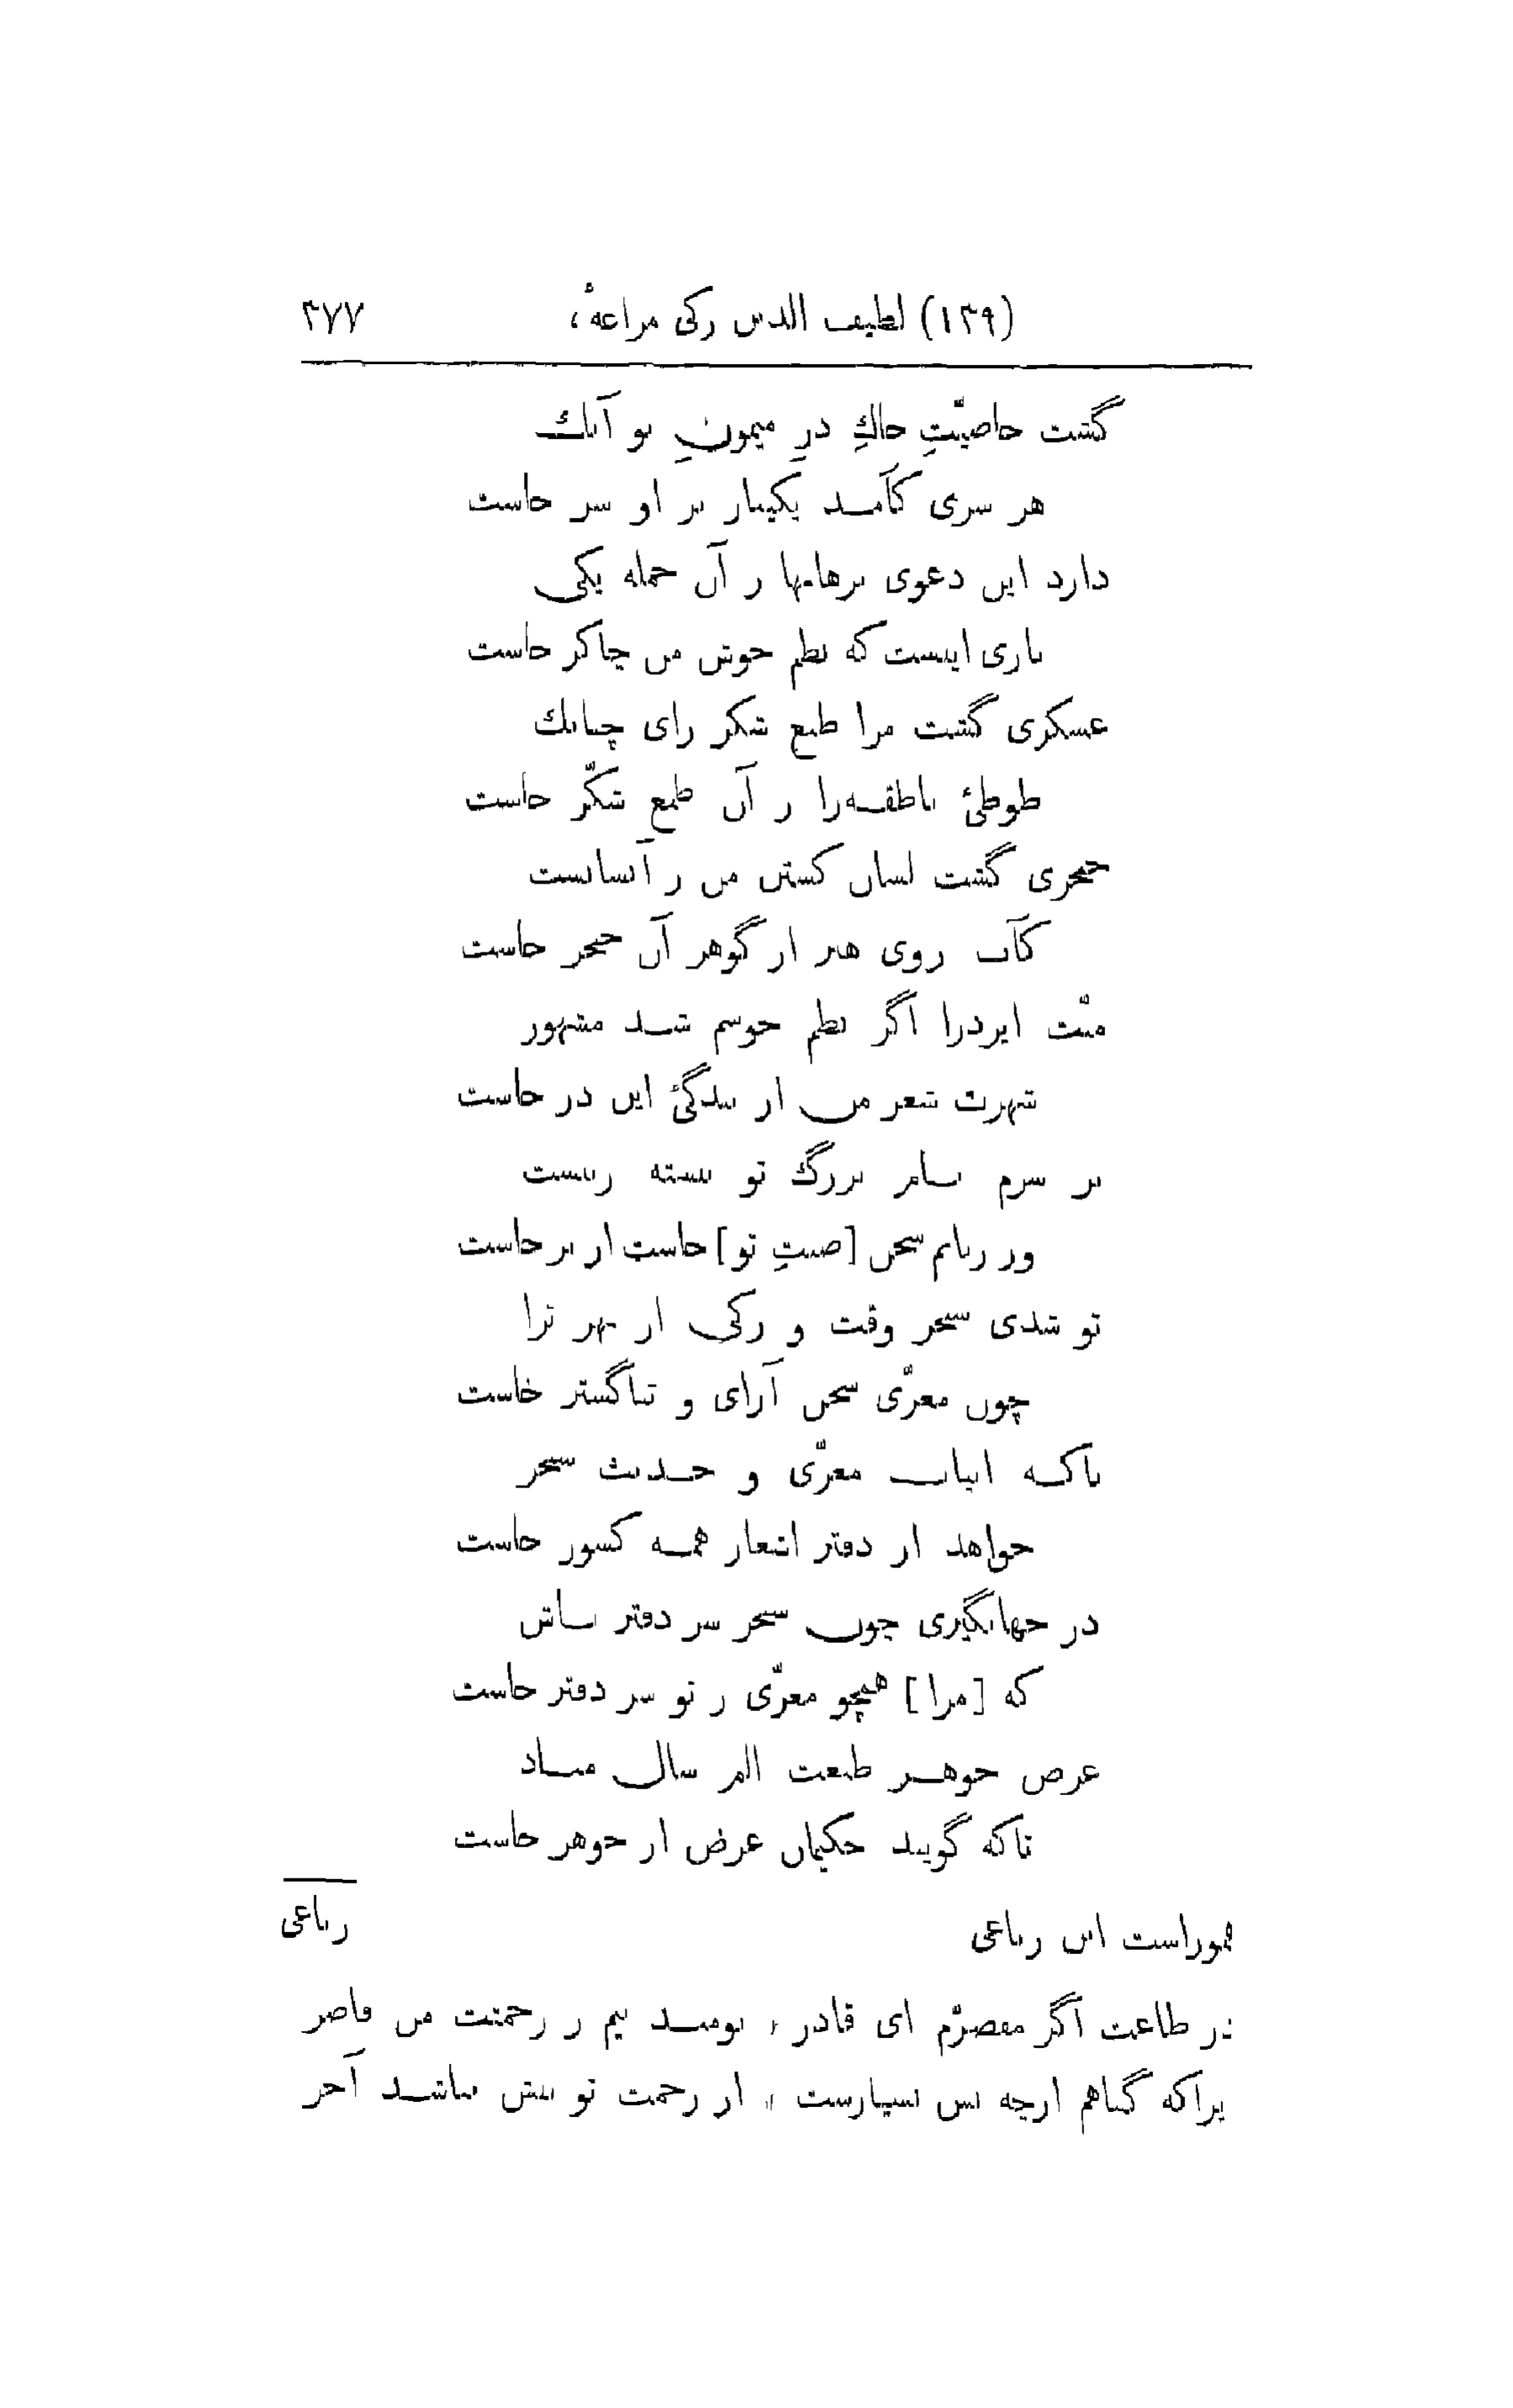 (۱۳۹) لطیف الدین زکی مراغهٔ، ۳۷۷
گشت خاصیّتِ خاكِ درِ میمونِ تو آنك
هر سری کآمد یکبار بر او سر خاست
دارد این دعوی برهانها ز آن جمله یکی
باری اینست که نظم خوش من چاکر خاست
عسکری گشت مرا طبع شکر زای چنانك
طوطیٔ ناطقه‌را ز آن طبع شکّر خاست
خنجری گشت لسان من ز آنسانست
کآب روی هنر از گوهر آن خنجر خاست
منّت ایزدرا اگر نظم خوشم شد مشهور
شهرت شعر من از بندگیٔ این در خاست
بر سرم سایر بزرگ تو نبسته
ور زبانم سخن [صیتِ تو] خاست از بر خاست
تو شدی سنجر وقت و زکی از بهر ترا
چون معزّی سخن آرای و ثناگستر خاست
باکه ابیات معزّی و حدیث سنجر
خواهد از دفتر اشعار همه کشور خاست
در جهانگیری چون سنجر سر دفتر باش
که [مرا] همچو معزّی ز تو سر دفتر خاست
عرض جوهر طبعت الم سال مباد
تاکه گویند حکیمان عرض از جوهر خاست
رباعی
هموراست این رباعی
در طاعت اگر مقصرّم ای قادر، نومید نیم ز رحمتت من قاصر
زیراکه گناهم ارچه بس بسیارست، از رحمت تو بیش نباشد آخر